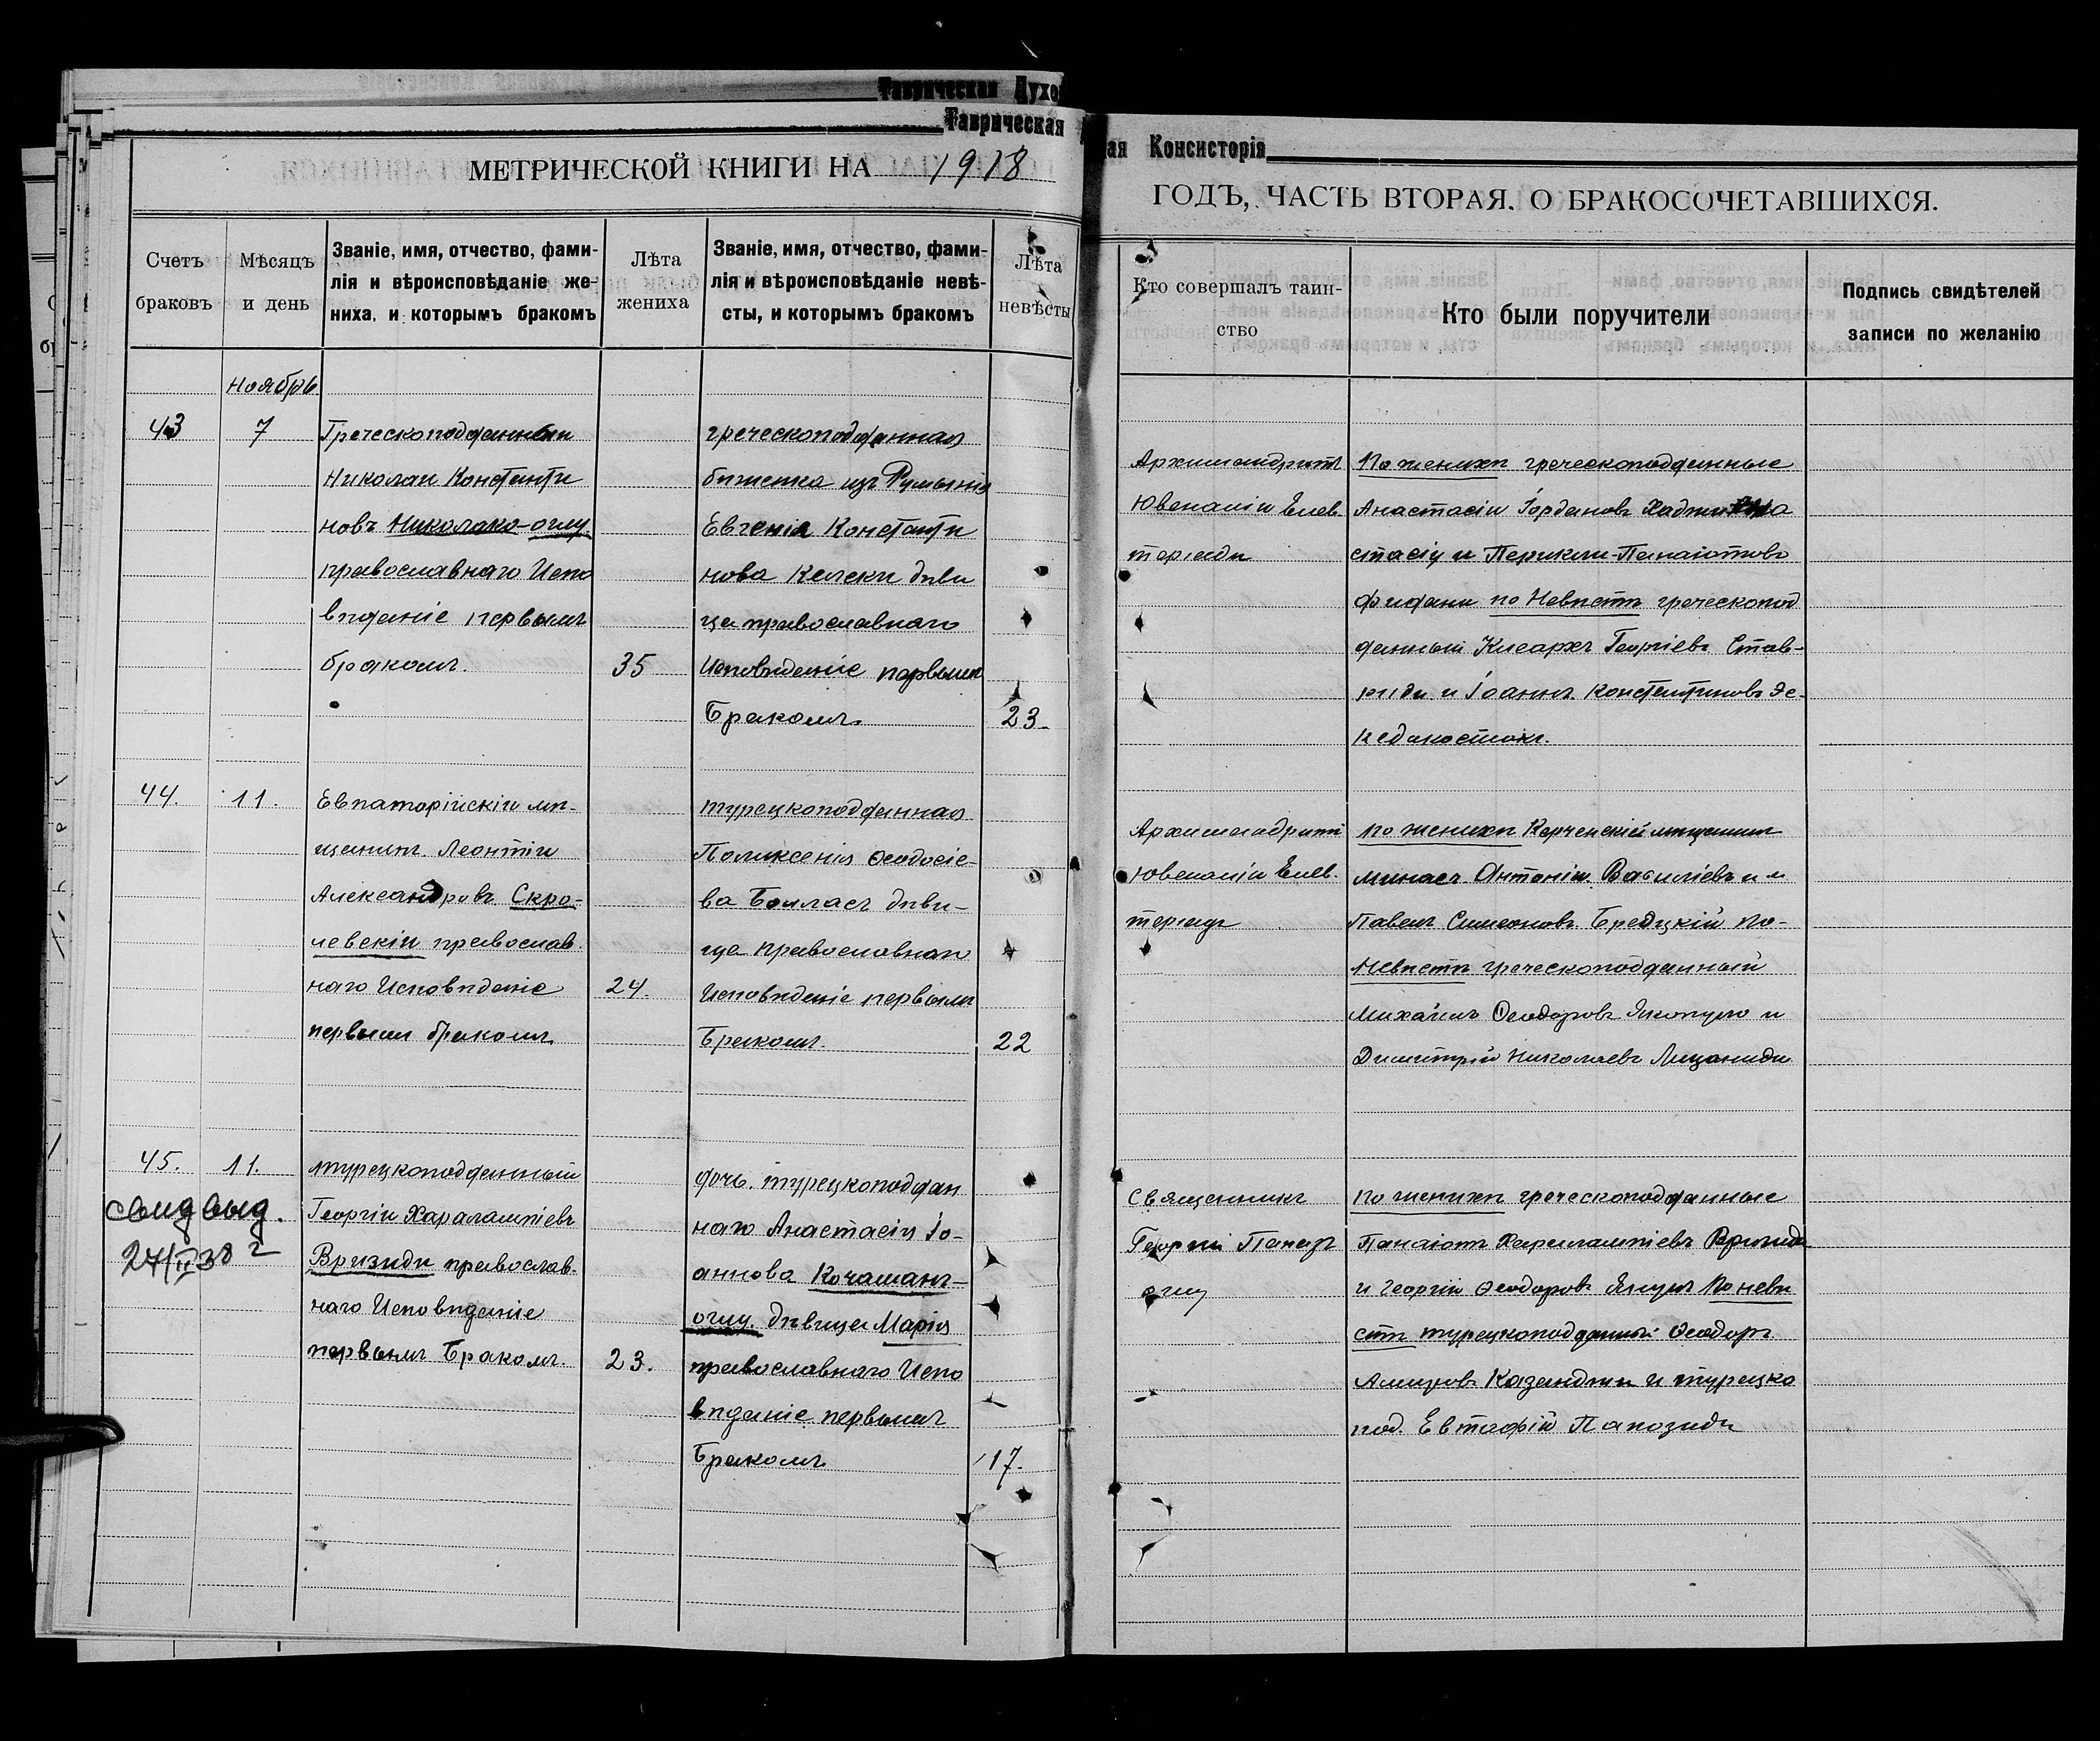 Таврическая Духо
Таврическая
ая Консисторія
МЕТРИЧЕСКОЙ КНИГИ НА 1918
ГОДЪ, ЧАСТЬ ВТОРАЯ. О БРАКОСОЧЕТАВШИХСЯ.
Счетъ браковъ
Мѣсяцъ и день
Званіе, имя, отчество, фами-
лія и вѣроисповѣданіе же-
ниха, и которымъ бракомъ
Лѣта жениха
Званіе, имя, отчество, фами-
лія и вѣроисповѣданіе невѣ-
сты, и которымъ бракомъ
Лѣта невѣсты
Кто совершалъ таин-
ство
Кто были поручители
Подпись свидѣтелей
записи по желанію
ноябрь
43
7
Греческоподданный
Николаи Константи
новъ Николако-оглу
православнаго Испо
вѣданіе первымъ
бракомъ.
35
греческоподданная
бѣженка изъ Румынія
Евгенія Константи
нова Келеки дѣви
ца православнаго
Исповѣданіе первымъ
Бракомъ.
23
Архимандритъ
Ювеналій Елев.
теріади
По женихѣ греческоподданные
Анастасіи Іордановъ Хаджи
стасіу и Перикли Панаіотовъ
фидани по Невѣстѣ греческопод
данный Клеархъ Георгіевъ Став-
риди и Іоаннъ Константиновъ Эс-
44.
11.
Евпаторійскіи мѣ-
щанинъ Леонтіи
Александровъ Скро-
левскіи православ.
наго Исповѣданіе
первым бракомъ.
24.
турецкоподданная
Поликсенія Ѳеодосіе-
ва Боялас дѣви-
ца православная
Исповѣданіе первымъ
Бракомъ.
22
Архимандритъ
Ювеналіи Елев.
теріади
по женихѣ Керченскій мѣщанинъ
Минасъ Антоніи Василіевъ и
Павелъ Симеоновъ Бредцкій по-
Невѣстѣ греческоподданный
Михаилъ Ѳеодоровъ и
Димитрій Николаевъ Лицаниди
45.
11.
свид выд.
27/II 38 г
турецкоподданный
Георгіи Харалампіевъ
Вризиди православ-
наго Исповѣданіе
первымъ Бракомъ.
23.
дочь турецкоподдан
наго Анастасія Іо-
аннова Кочаманъ-
оглу. дѣвица Марія
православнаго Испо
вѣданіе первымъ
Бракомъ
17.
Священникъ
Георгій Папазъ
оглу
по женихѣ греческоподданные
Панаіотъ Харалампіевъ Вризиди
и Георгій Ѳеодоровъ По невѣ
стѣ турецкоподданный Ѳеодоръ
Амировъ Казанджи и турецко
под. Евтафій Папозиди